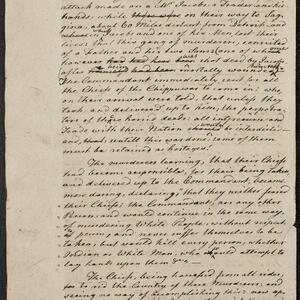 attack made on a Mr. Jacobs a Trader and his
hands, while on their way to Sag=
=gina, about 60 Miles distant from Detroit— and
where Jacobs and one of his Men, lost their
lives; that this gang of Murderers, consisted
of a Father and his two Sons (one of whom
however was shot dead by Jacobs
after being mortally wounded
The Commandant immediately sent for all
the Chiefs of the Chippewas to come in; who
on their arrival were told that unless they
took and delivered up to them, the perpetra=
=tors of these horrid deeds; all intercourse and
Trade with their Nation would be interdicted—
and, until this was done, some of them
must be retained as hostages.
The murderers learning, that their Chiefs
had become responsible, for their being taken
and delivered up to the Commandant, became
more daring, declaring that they neither feared
their Chiefs, the Commandant, nor any other
Person; and would continue in the same way,
of murdering White People, without respect
of person, and never suffer themselves to be
taken, but would kill every person, whether
Indian or White Man, who should attempt to
lay hands upon them
The Chiefs, being harassed from all sides,
for to rid the Country of these Murderers; and
seeing no way of accomplishing this